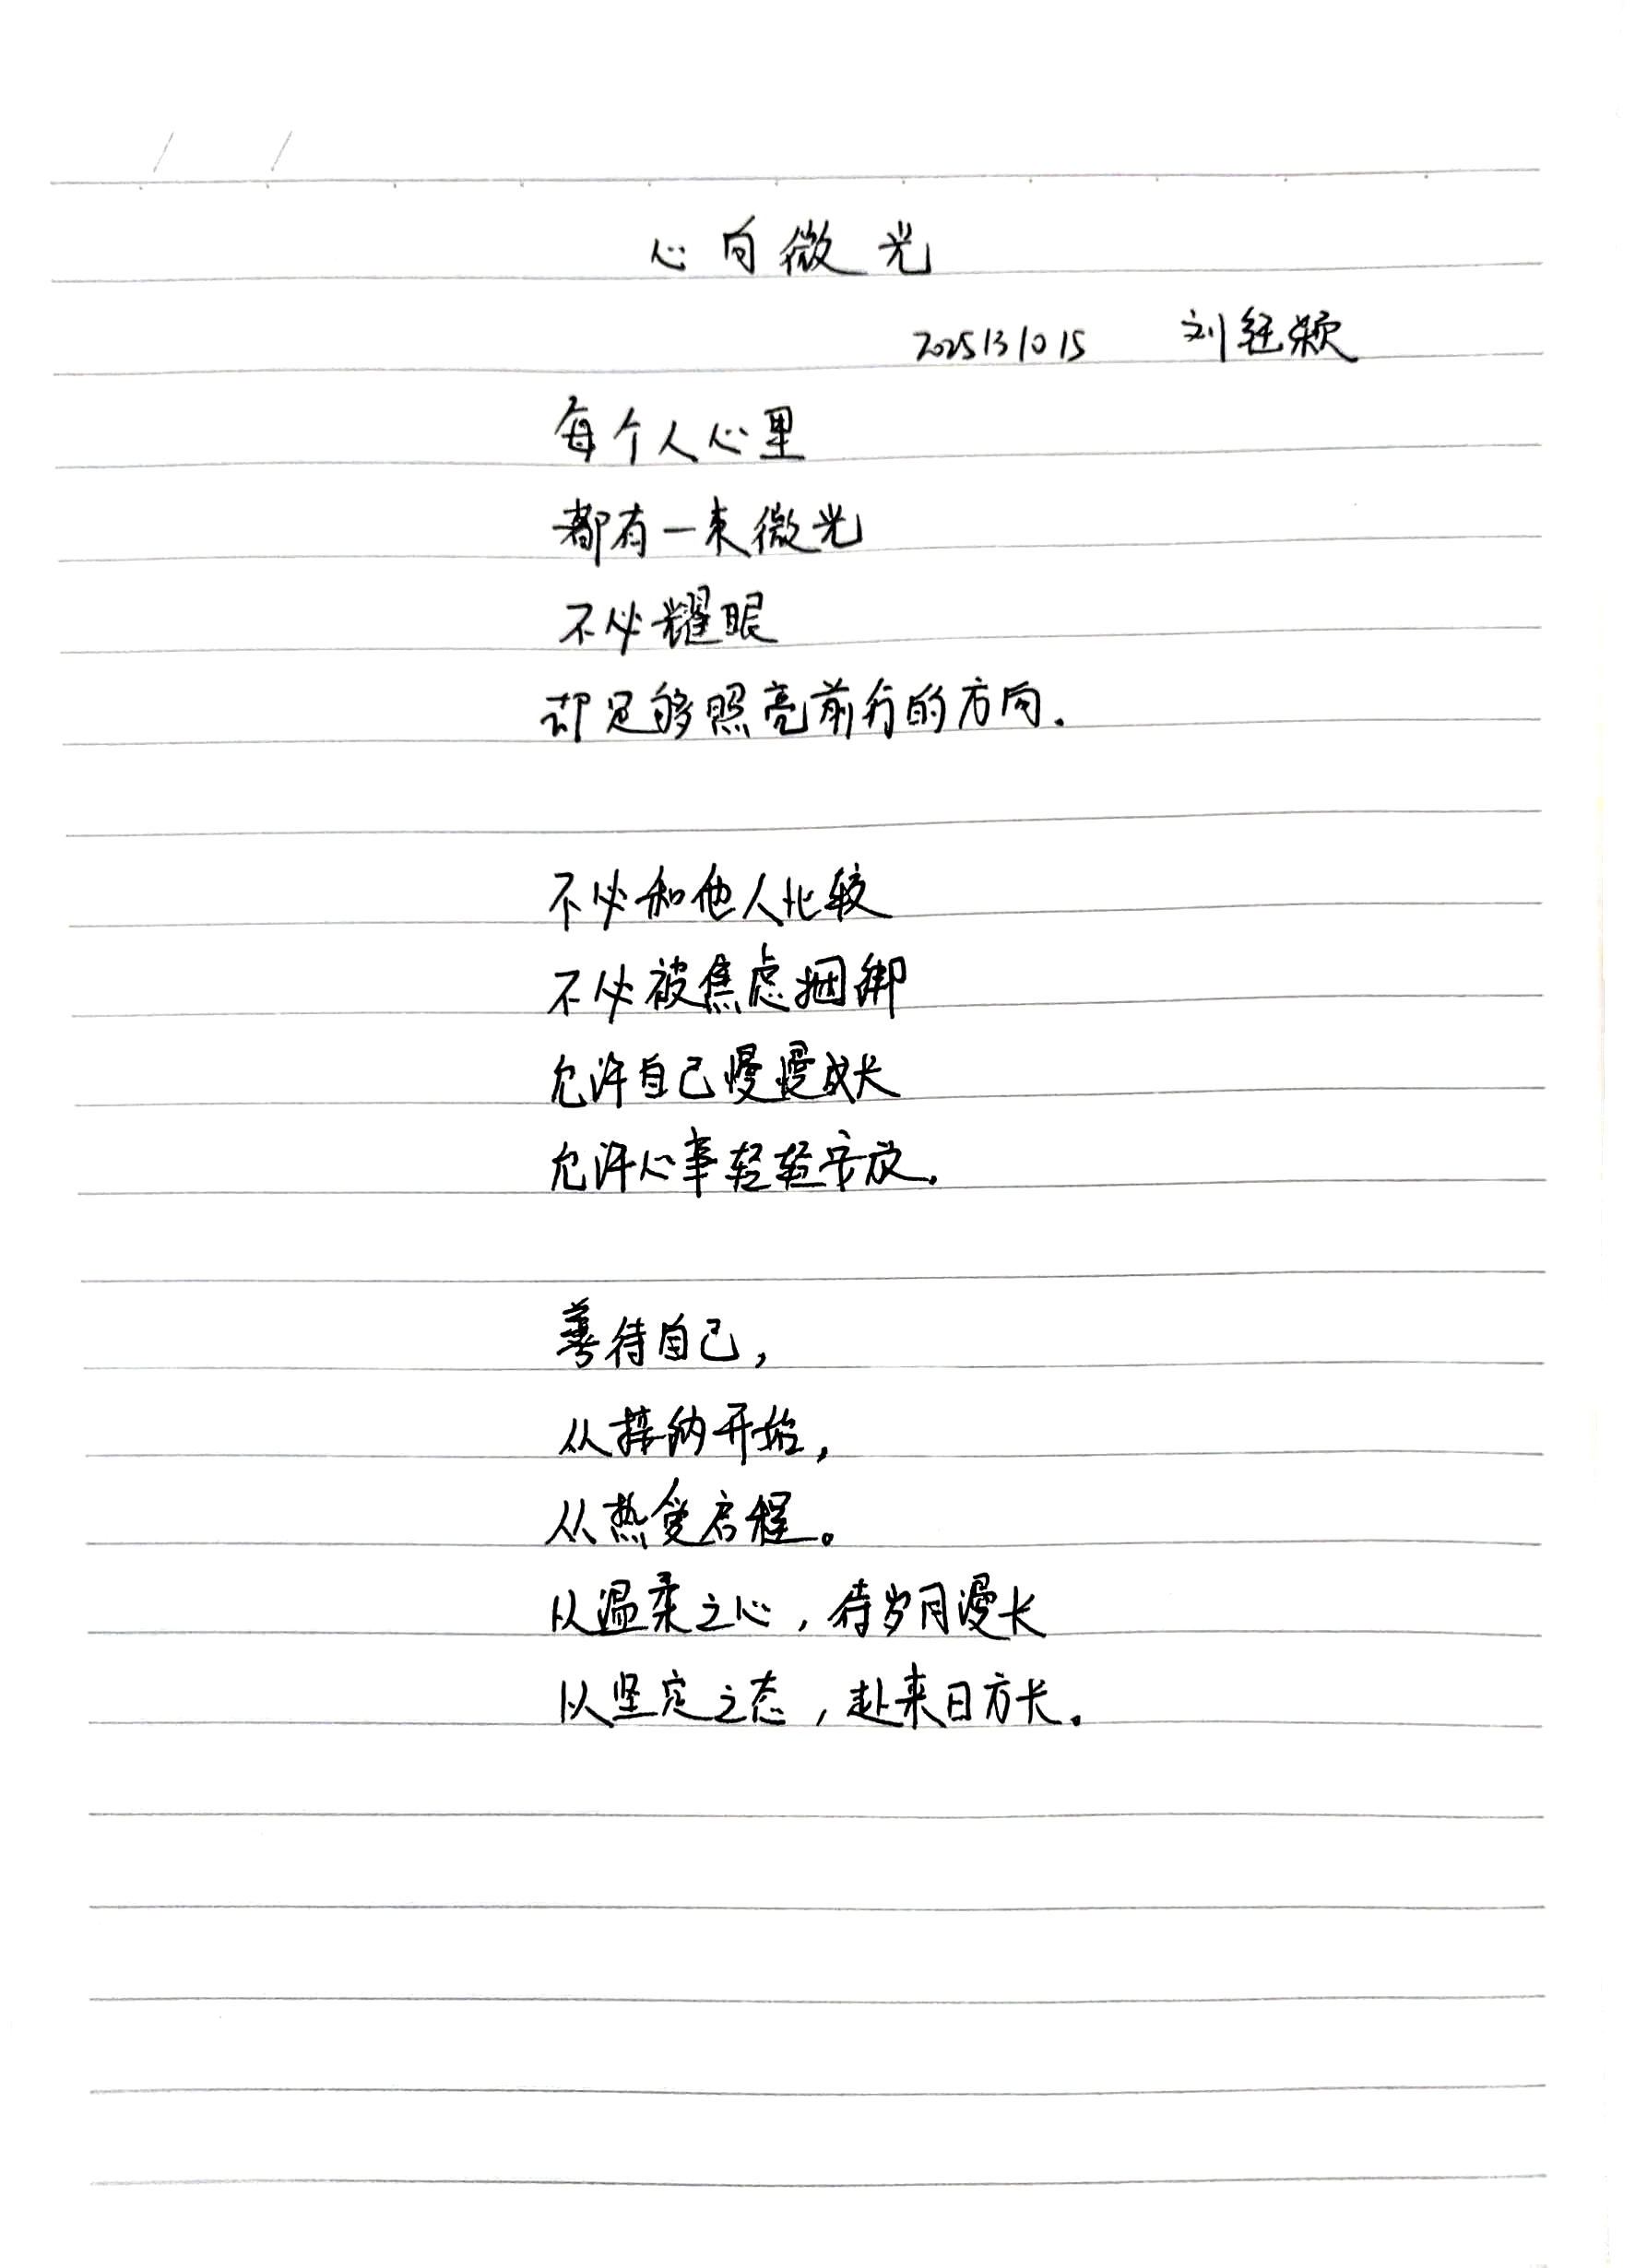 心向微光
2025131015 刘钰颖
每个人心里
都有一束微光
不必耀眼
却足够照亮前行的方向.
不必和他人比较
不必被焦虑捆绑
允许自己慢慢成长
允许心事轻轻安放.
善待自己,
从接纳开始,
从热爱启程。
以温柔之心,待岁月漫长
以坚定之态,赴来日方长。